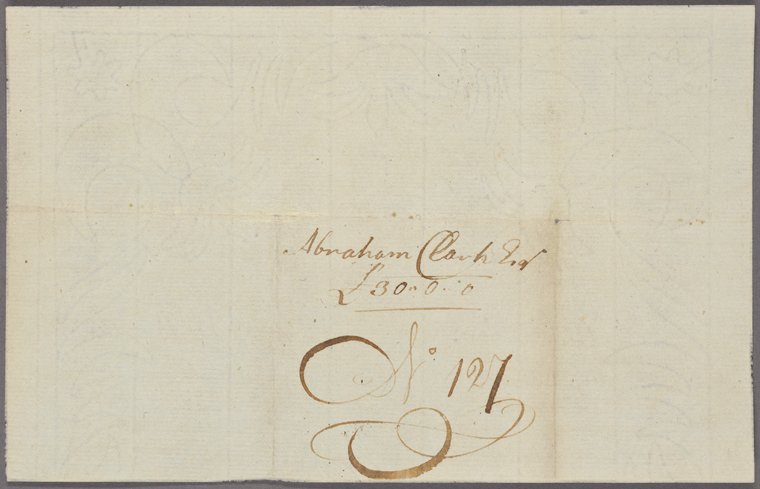 Abraham Clark Esqr
£30..0..0
No 127